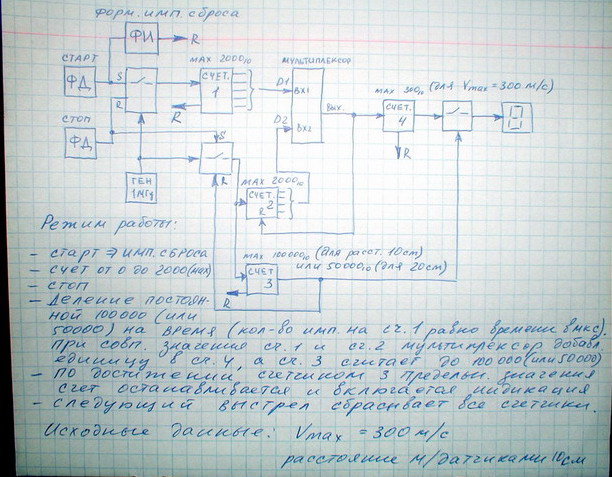 форм. имп. сброса
ФИ
R
СТАРТ
ФД
S
R
MAX 2000₁₀
СЧЕТ.
1
R
D1
МУЛЬТИПЛЕКСОР
ВХ1
ВЫХ.
D2
ВХ2
MAX 300₁₀ (для Vmax = 300 м/с)
СЧЕТ.
4
R
СТОП
ФД
S
R
ГЕН
1МГц
MAX 2000₁₀
СЧЕТ.
R 2
MAX 100000₁₀ (для расст. 10см)
или 50000₁₀ (для 20см)
СЧЕТ
3
R
Режим работы:
- старт ⇒ имп. сброса
- счет от 0 до 2000 (мах)
- стоп
- Деление постоян-
ной 100000 (или
50000) на время (кол-во имп. на сч. 1 равно времени в мкс).
При совп. значения сч. 1 и сч. 2 мультиплексор добавл.
единицу в сч. 4, а сч. 3 считает до 100000 (или 50000)
- по достижении счетчиком 3 предельн. значения
счет останавливается и включается индикация
- следующий выстрел сбрасывает все счетчики.
Исходные данные: Vmax = 300 м/с
расстояние м/датчиками 10см